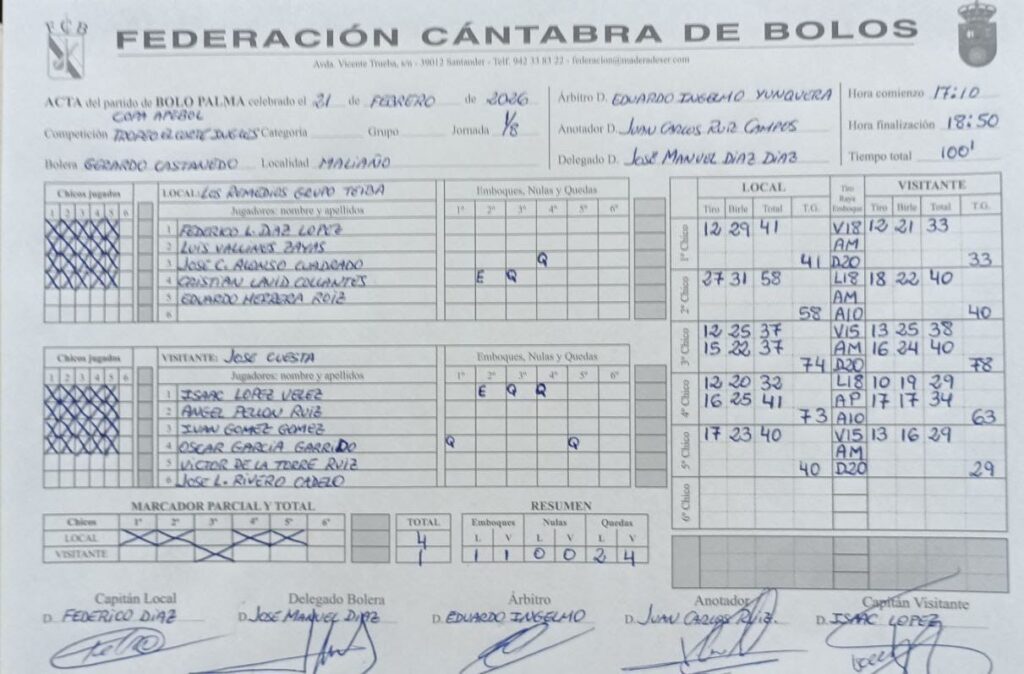 FCB
FEDERACIÓN CÁNTABRA DE BOLOS
Avda. Vicente Trueba, s/n - 39012 Santander - Telf. 942 33 83 22 - federacion@maderadeser.com
ACTA del partido de BOLO PALMA celebrado el 21 de FEBRERO de 2026
COPA APEBOL
Competición TROFEO EL CORTE INGLES Categoría Grupo Jornada 1/8
Bolera GERARDO CASTANEDO Localidad MALIAÑO
Árbitro D. EDUARDO INGELMO YUNQUERA
Anotador D. JUAN CARLOS RUIZ CAMPOS
Delegado D. JOSÉ MANUEL DIAZ DIAZ
Hora comienzo 17:10
Hora finalización 18:50
Tiempo total 100'
Chicos jugados LOCAL: LOS REMEDIOS GRUPO TEIBA Emboques, Nulas y Quedas
1 2 3 4 5 6 Jugadores: nombre y apellidos 1º 2º 3º 4º 5º 6º
1 FEDERICO L. DIAZ LOPEZ
2 LUIS VALLINES ZAYAS
3 JOSÉ C. ALONSO CUADRADO Q
4 CRISTIAN LAVID COLLANTES E Q
5 EDUARDO HERRERA RUIZ
6
Chicos jugados VISITANTE: JOSE CUESTA Emboques, Nulas y Quedas
1 2 3 4 5 6 Jugadores: nombre y apellidos 1º 2º 3º 4º 5º 6º
1 ISAAC LOPEZ VELEZ E Q Q
2 ANGEL PELLON RUIZ
3 IVAN GOMEZ GOMEZ
4 OSCAR GARCIA GARRIDO Q Q
5 VICTOR DE LA TORRE RUIZ
6 JOSE L. RIVERO CADELO
LOCAL Tiro Raya Emboque VISITANTE
Tiro Birle Total T.G. Tiro Birle Total T.G.
1º Chico 12 29 41 V18 12 21 33
AM
41 D20 33
2º Chico 27 31 58 L18 18 22 40
AM
58 A10 40
3º Chico 12 25 37 V15 13 25 38
15 22 37 AM 16 24 40
74 D20 78
4º Chico 12 20 32 L18 10 19 29
16 25 41 AP 17 17 34
73 A10 63
5º Chico 17 23 40 V15 13 16 29
AM
40 D20 29
6º Chico
MARCADOR PARCIAL Y TOTAL
Chicos 1º 2º 3º 4º 5º 6º TOTAL
LOCAL 4
VISITANTE 1
RESUMEN
Emboques Nulas Quedas
L V L V L V
1 1 0 0 2 4
Capitán Local Delegado Bolera Árbitro Anotador Capitán Visitante
D. FEDERICO DIAZ D. JOSÉ MANUEL DIAZ D. EDUARDO INGELMO D. JUAN CARLOS RUIZ. D. ISAAC LOPEZ